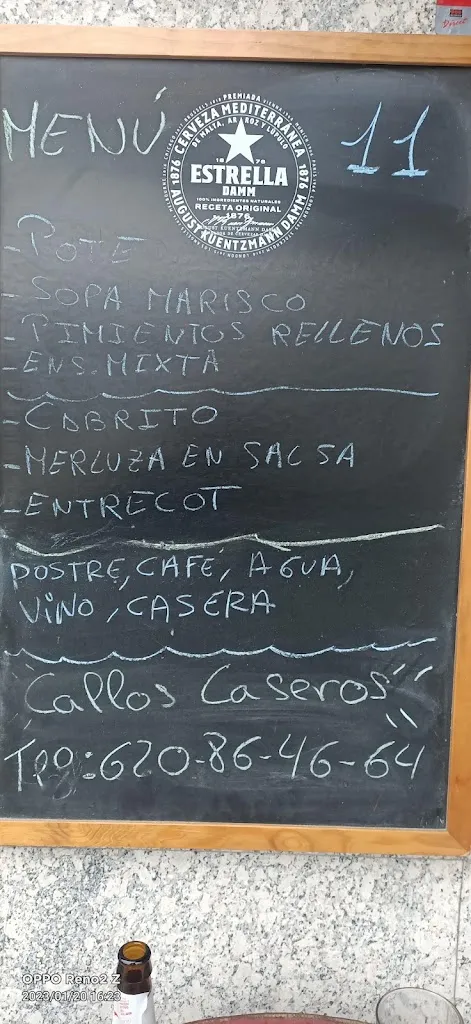 MENÚ 11
PREMIADA
CERVEZA MEDITERRÁNEA
DE MALTA, ARROZ Y LÚPULO
1876 1876
18 76
ESTRELLA
DAMM
100% INGREDIENTES NATURALES
RECETA ORIGINAL
1876
AUGUST KUENTZMANN DAMM
- POTE
- SOPA MARISCO
- PIMIENTOS RELLENOS
- ENS. MIXTA
- CABRITO
- MERLUZA EN SALSA
- ENTRECOT
POSTRE, CAFÉ, AGUA,
VINO, CASERA
Callos Caseros
Tfg: 620-86-46-64
OPPO Reno2 Z
2023/01/20 16:23